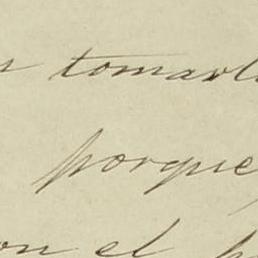 tomarl
porque
on el